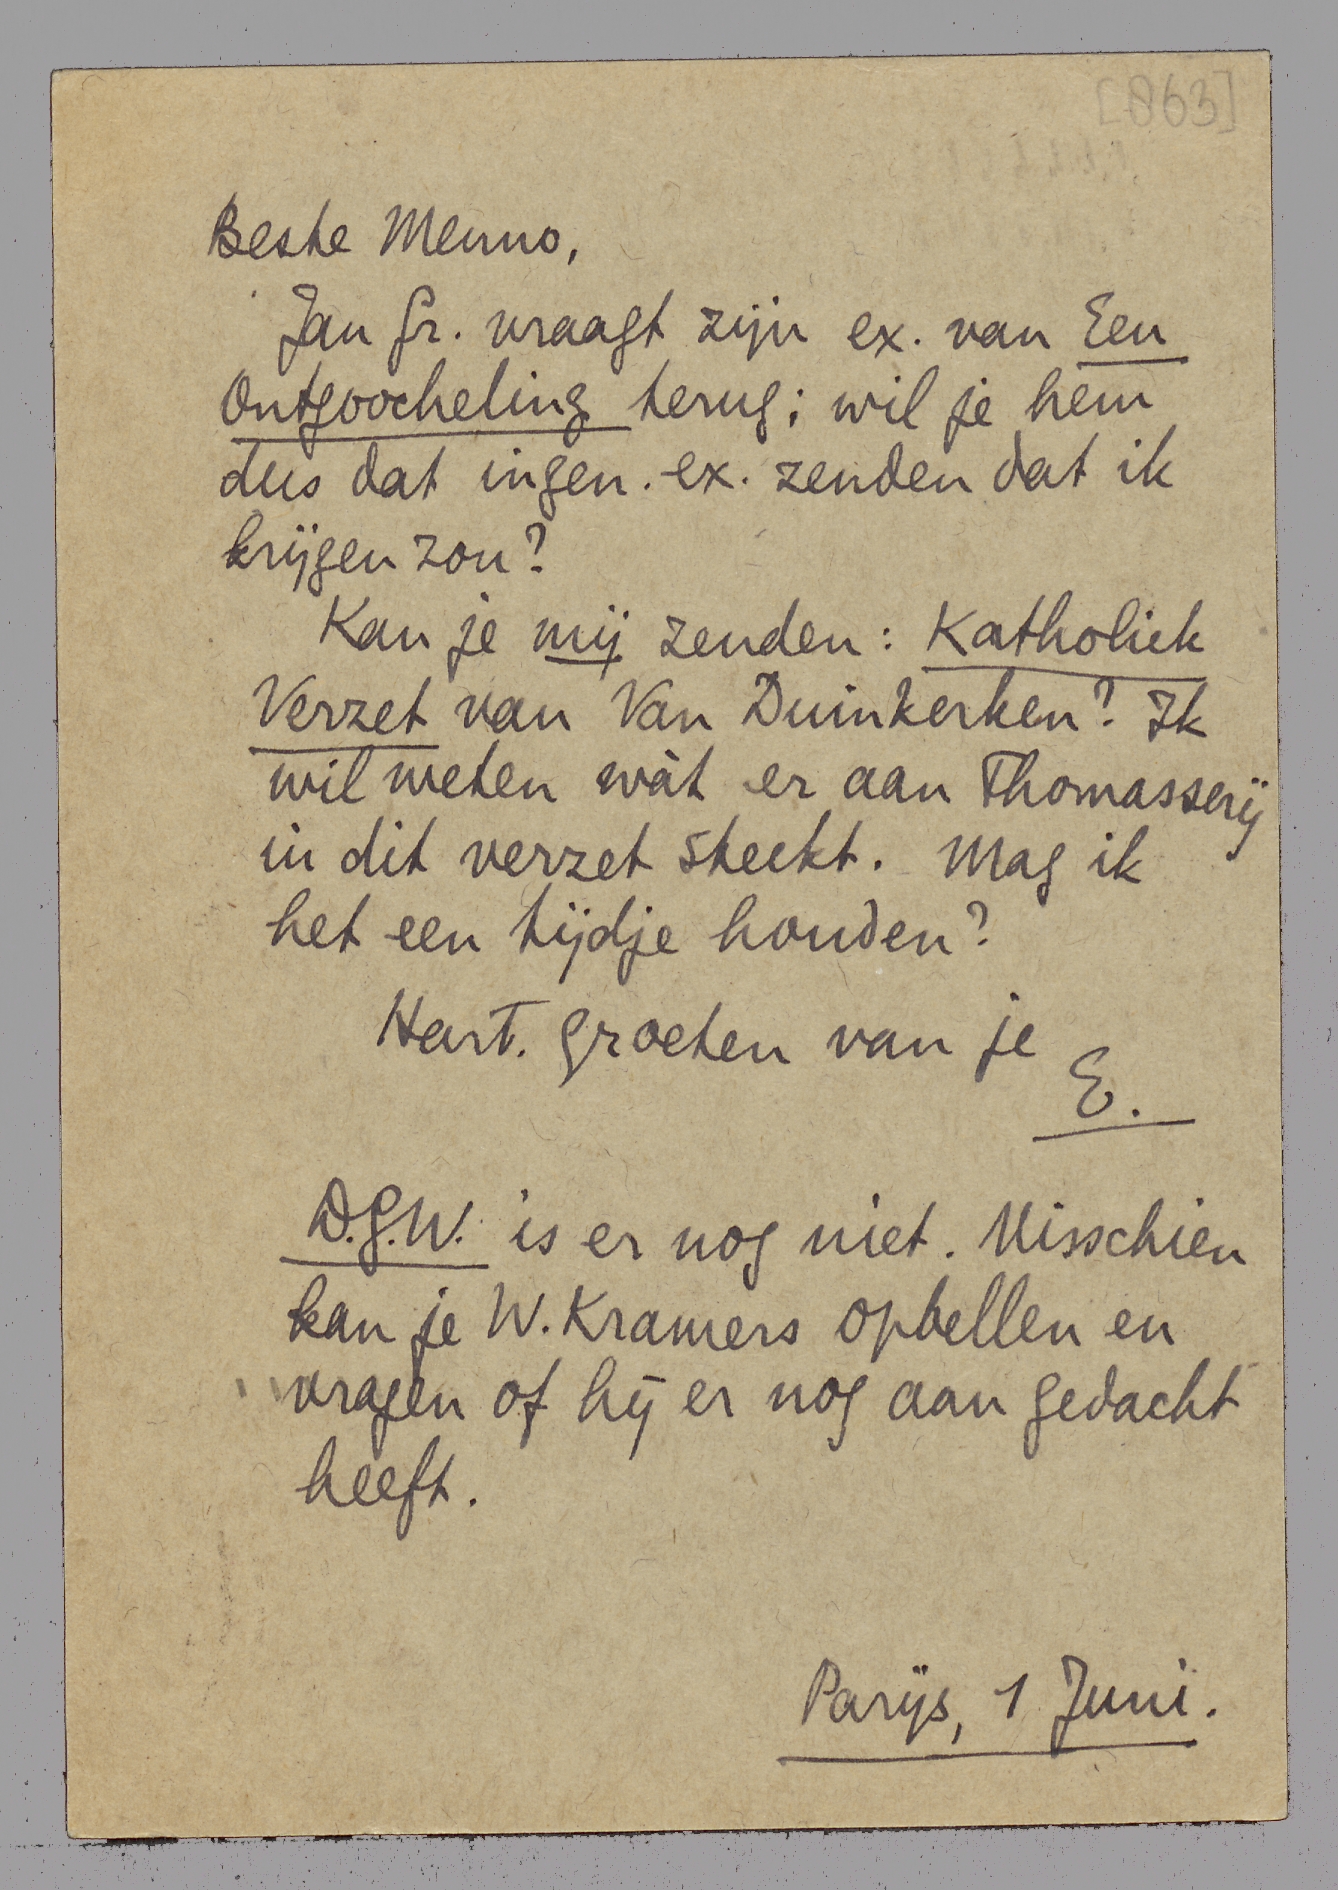 [863]
Beste Menno,
Jan Gr. vraagt zijn ex. van Een
Ontgoocheling terug; wil je hem
dus dat ingen. ex. zenden dat ik
krijgen zou?
Kan je mij zenden: Katholiek
Verzet van Van Duinkerken? Ik
wil weten wàt er aan Thomasserij
in dit verzet steekt. Mag ik
het een tijdje houden?
Hart. groeten van je
E.
D.G.W. is er nog niet. Misschien
kan je W. Kramers opbellen en
vragen of hij er nog aan gedacht
heeft.
Parijs, 1 Juni.